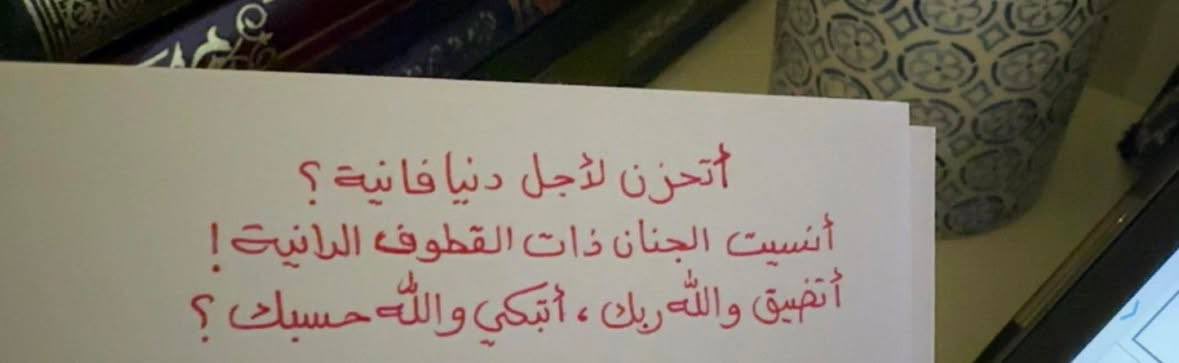 أتحزن لأجل دنيا فانية ؟
أنسيت الجنان ذات القطوف الدانية !
أتضيق والله ربك ، أتبكي والله حسبك ؟